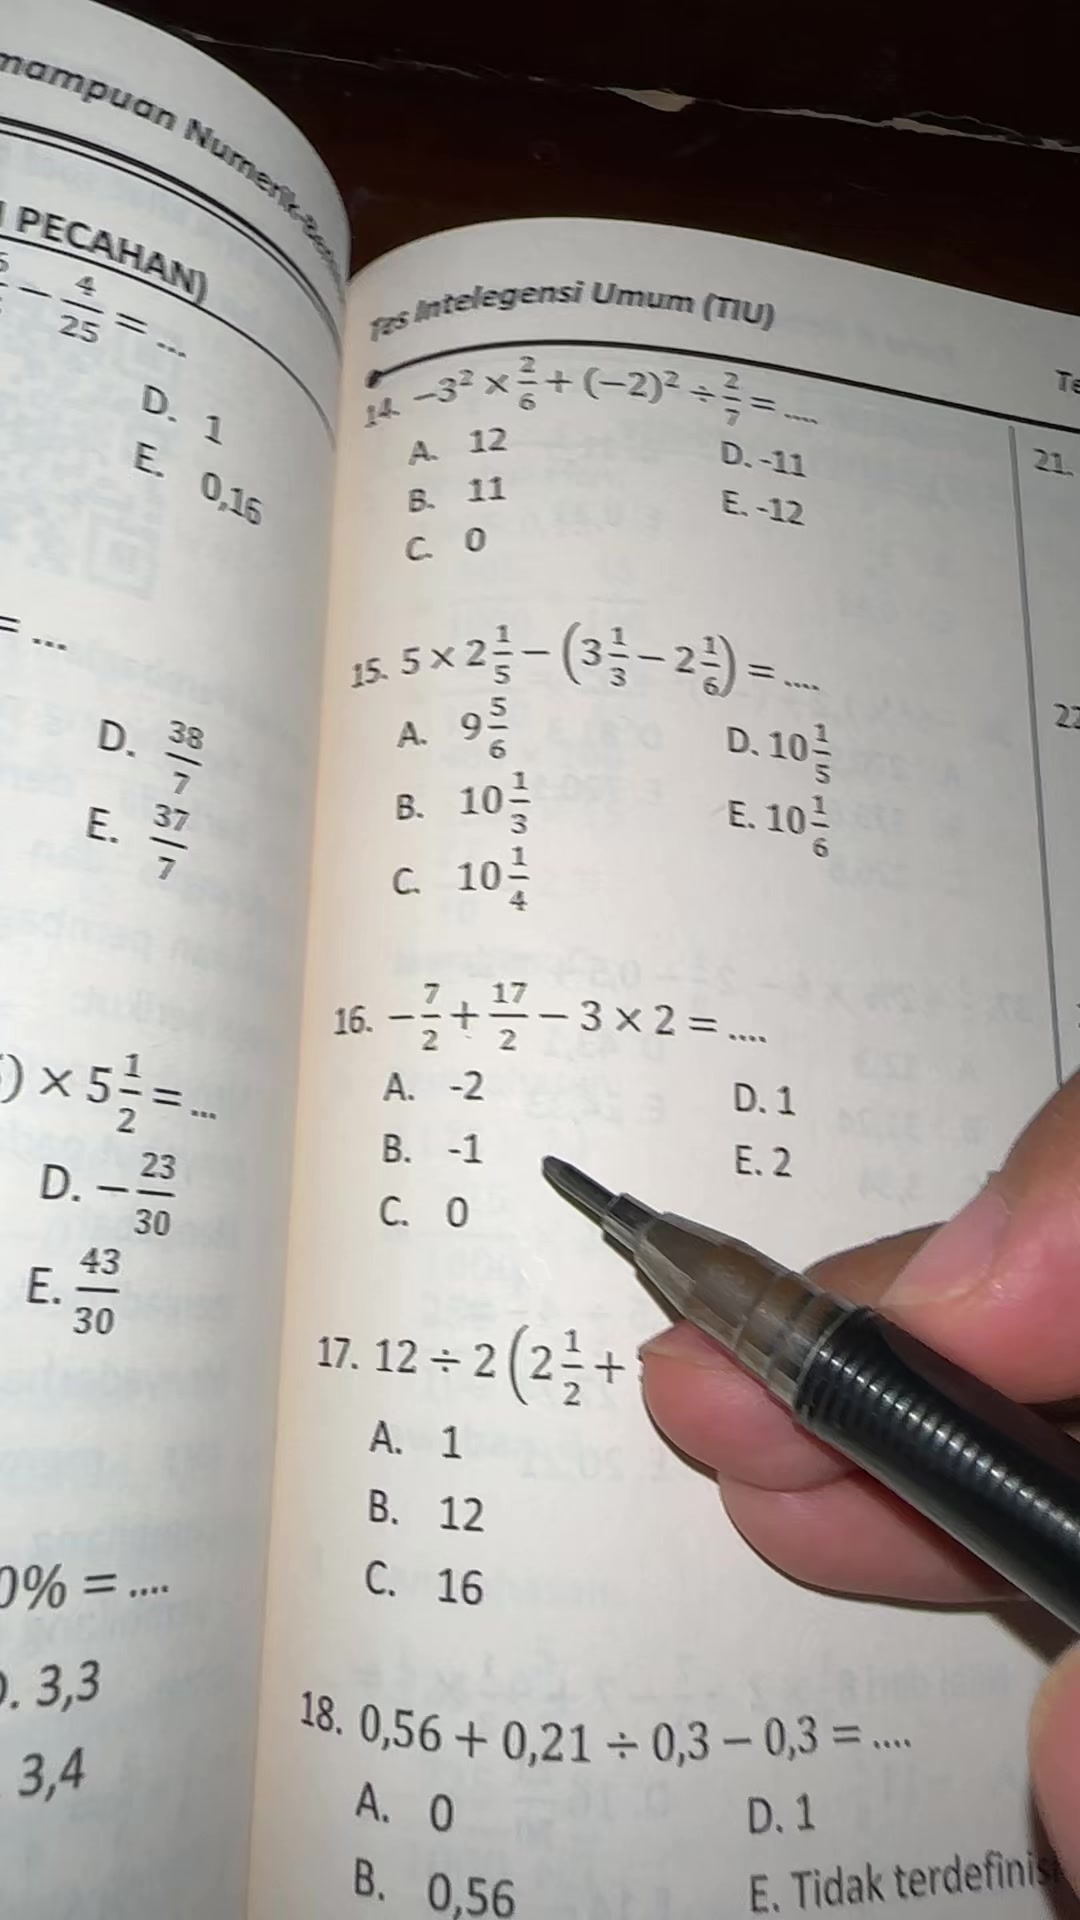 Numerik
PECAHAN)
− 4/25 = ...
D. 1
E. 0,16
= ...
D. 38/7
E. 37/7
) × 5 1/2 = ...
D. − 23/30
E. 43/30
0% = ....
. 3,3
3,4
Tes Intelegensi Umum (TIU)
14. −3² × 2/6 + (−2)² ÷ 2/7 = ....
A. 12
B. 11
C. 0
D. -11
E. -12
15. 5 × 2 1/5 − (3 1/3 − 2 1/6) = ....
A. 9 5/6
B. 10 1/3
C. 10 1/4
D. 10 1/5
E. 10 1/6
16. − 7/2 + 17/2 − 3 × 2 = ....
A. -2
B. -1
C. 0
D. 1
E. 2
17. 12 ÷ 2 (2 1/2 +
A. 1
B. 12
C. 16
18. 0,56 + 0,21 ÷ 0,3 − 0,3 = ....
A. 0
B. 0,56
D. 1
E. Tidak terdefinis
Te
21.
22